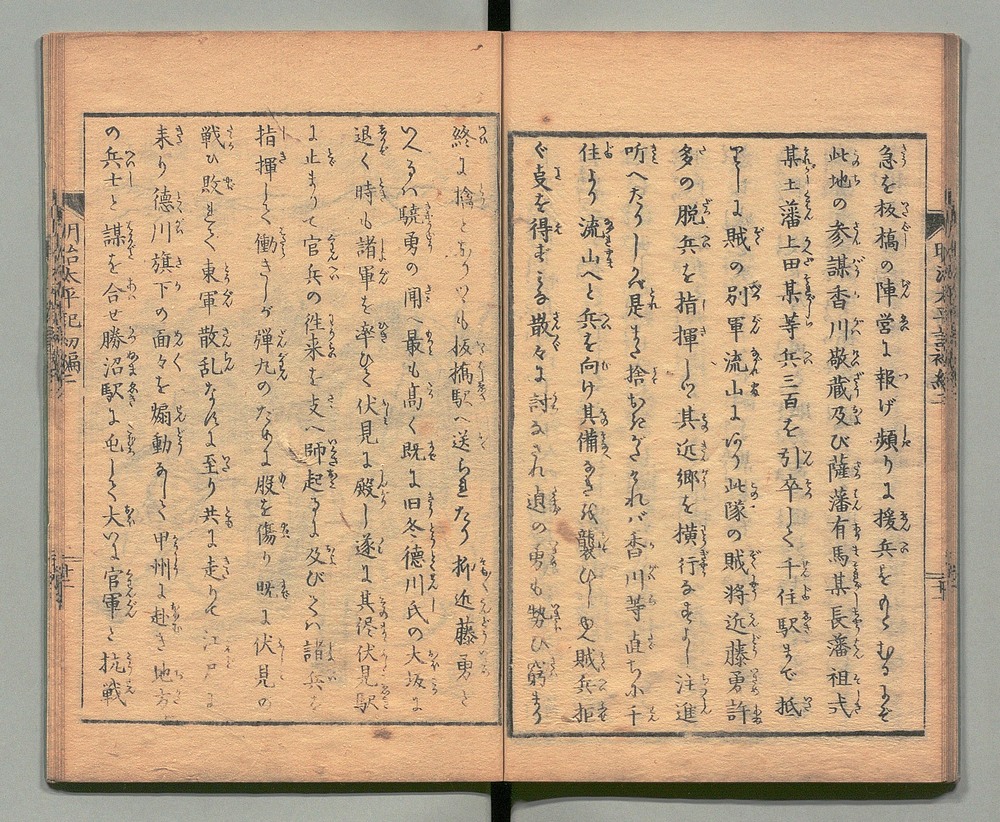 急を板橋の陣営に報げ頻りに援兵をもとむるにぞ
此地の参謀香川敬蔵及び薩藩有馬某長藩祖式
某土藩上田某等兵三百を引卒して千住駅まで抵
りしに賊の別軍流山にあり此隊の賊将近藤勇許
多の脱兵を指揮して其近郷を横行なすよし注進
听へたりしかば是また捨おきがたければ香川等直ちに千
住より流山へと兵を向け其備なきを襲ひしに賊兵拒
ぐ支を得ずして散々に討なされ道の勇も勢ひ窮まり
終に擒となりつゝも板橋駅へ送られたり抑近藤勇と
いへるハ驍勇の聞へ最も高く既に旧冬徳川氏の大坂に
退く時も諸軍を率ひて伏見に殿し遂に其侭伏見駅
に止まりて官兵の往来を支へ師起るに及びてハ諸兵を
指揮して働きしが弾丸のために股を傷り既に伏見の
戦ひ敗れて東軍散乱なすに至り共に走りて江戸に
来り徳川旗下の面々を煽動なして甲州に赴き地方
の兵士と謀を合せ勝沼駅に屯して大いに官軍と抗戦
明治太平記初編二